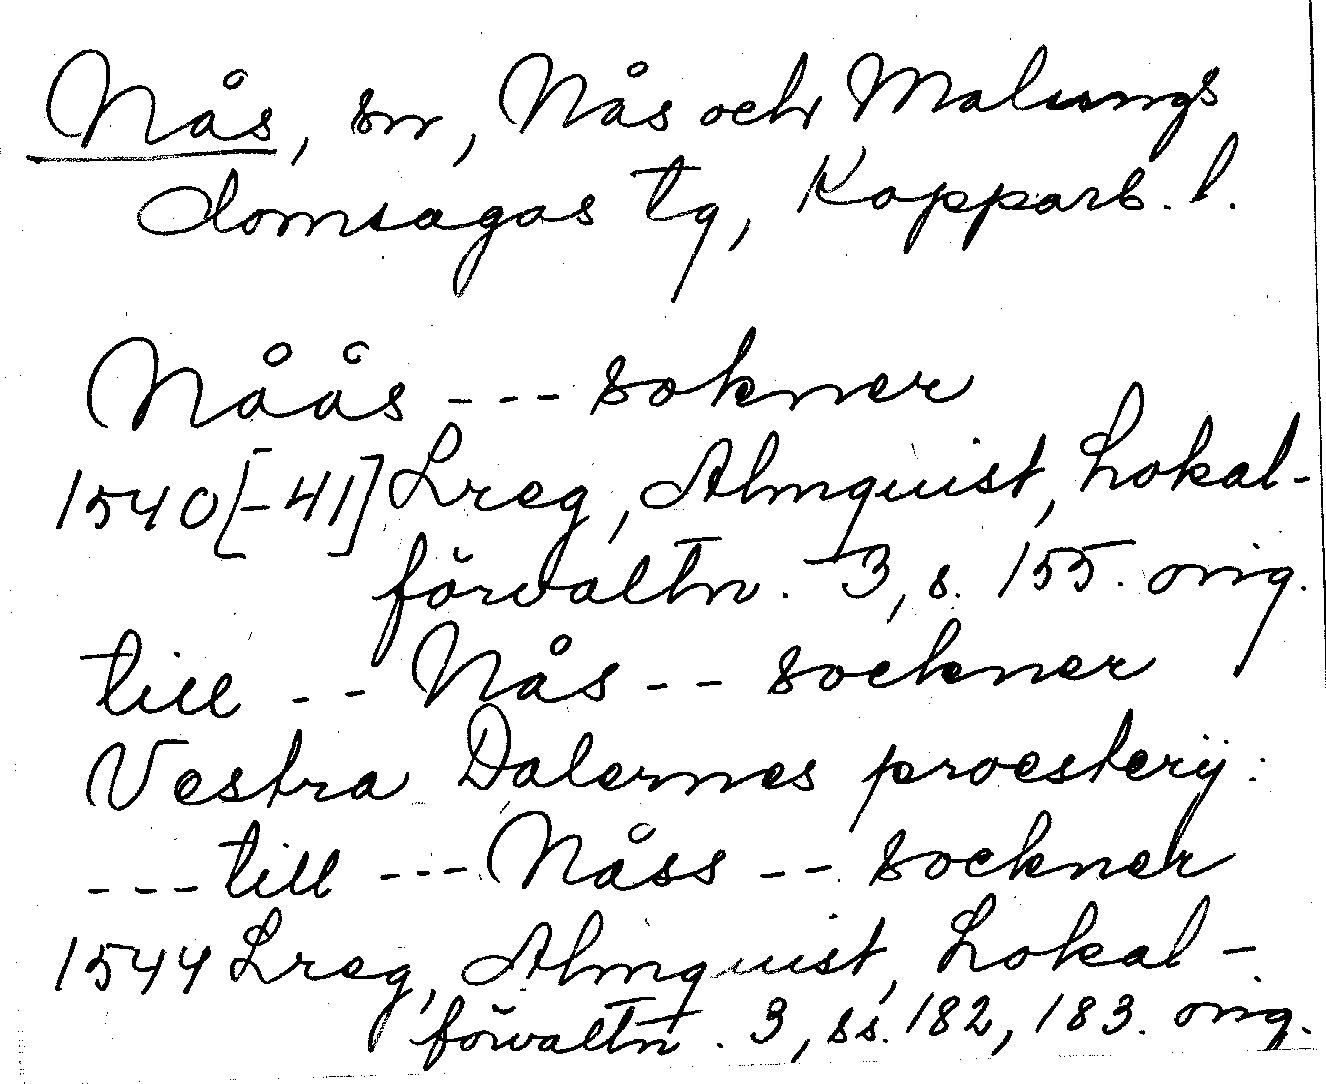 Nås, sn, Nås och Malungs
domsagas tg, Kopparb. l.
Nåås --- sokner
1540[-41] Lreg, Almquist, Lokal-
förvaltn. 3, s. 155. orig.
till -- Nås -- sockner
Vestra Dalernes proestery:
--- till --- Nåss -- sockner
1544 Lreg, Almquist, Lokal-
förvaltn. 3, ss. 182, 183. orig.